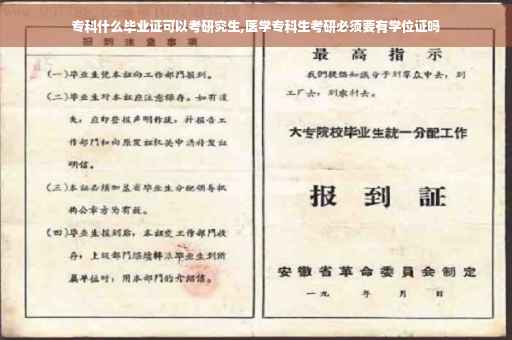 专科什么毕业证可以考研究生,医学专科生考研必须要有学位证吗
报到注意事项
(一)毕业生凭本证向工作部门报到。
(二)毕业生对本证应注意保存。如有遗
失,应即登报声明作废,并报告工
作部门和向原发证机关申请补发证
明信。
(三)本证必须加盖省毕业生分配领导机
构公章方为有效。
(四)毕业生报到后,本证交工作部门收
存,上级部门
毕业生到所
属单位时,用本部门的介绍信。
最高指示
我们提倡知识分子到群众中去,到
工厂去,到农村去。
大专院校毕业生统一分配工作
报到证
安徽省革命委员会制定
一九 年 月 日